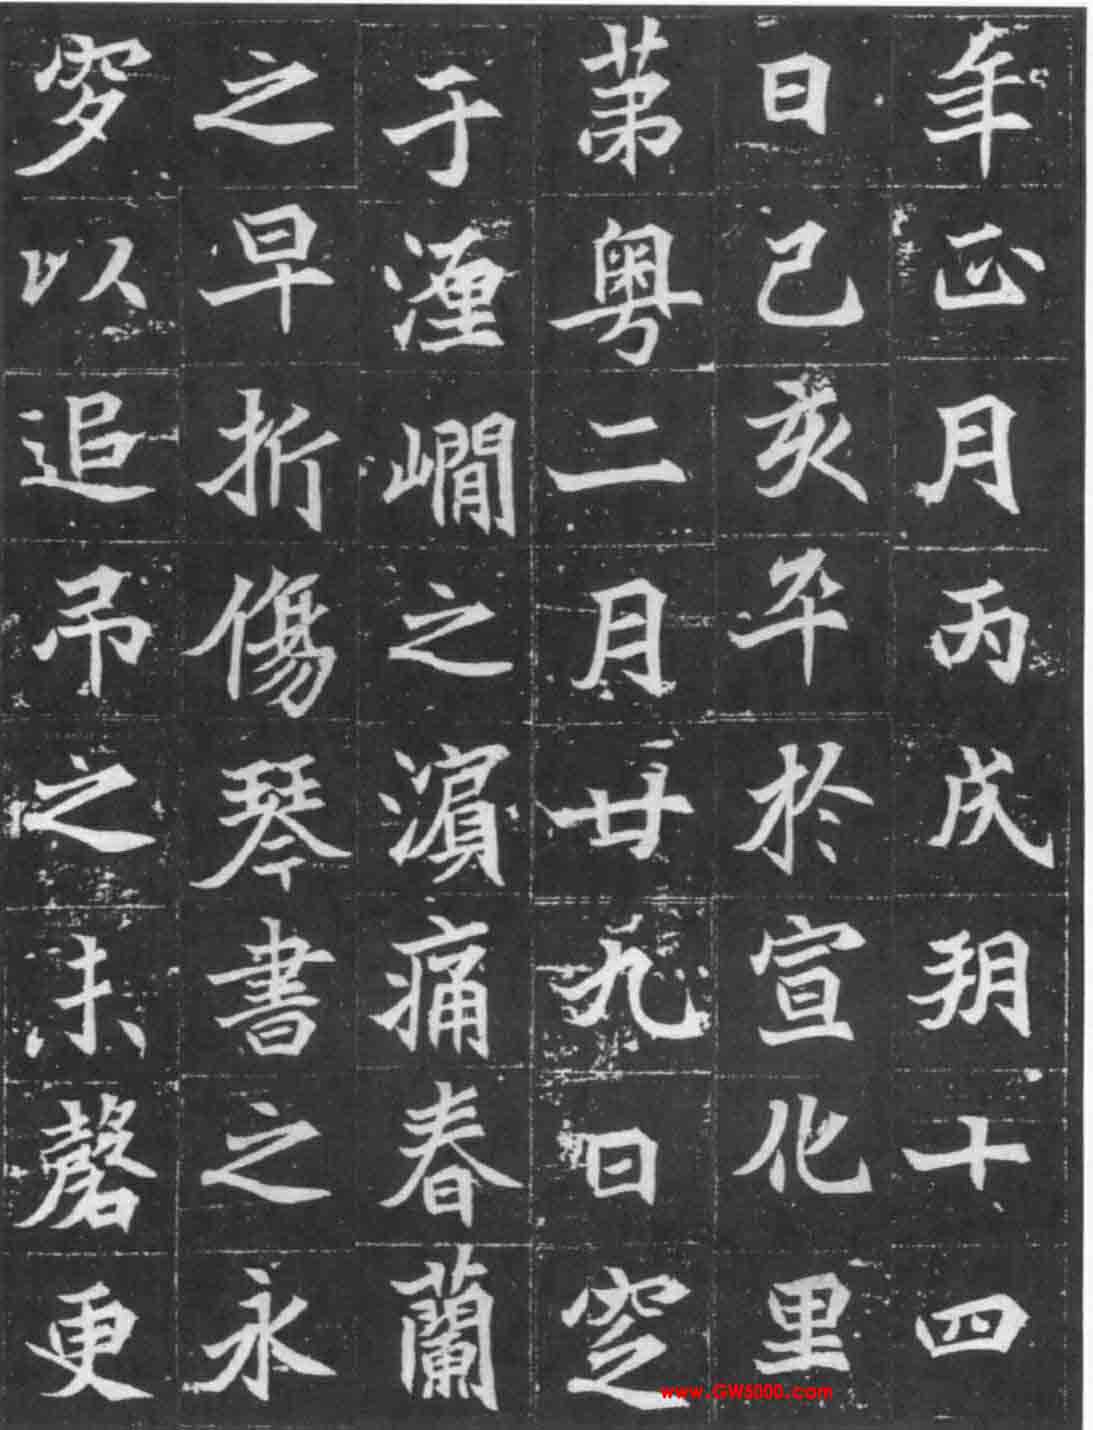 年正月丙戌朔十四
日己亥卒於宣化里
第粵二月廿九日窆
于瀍㵎之濱痛春蘭
之早折傷琴書之永
穸以追吊之未罄更
www.GW5000.com